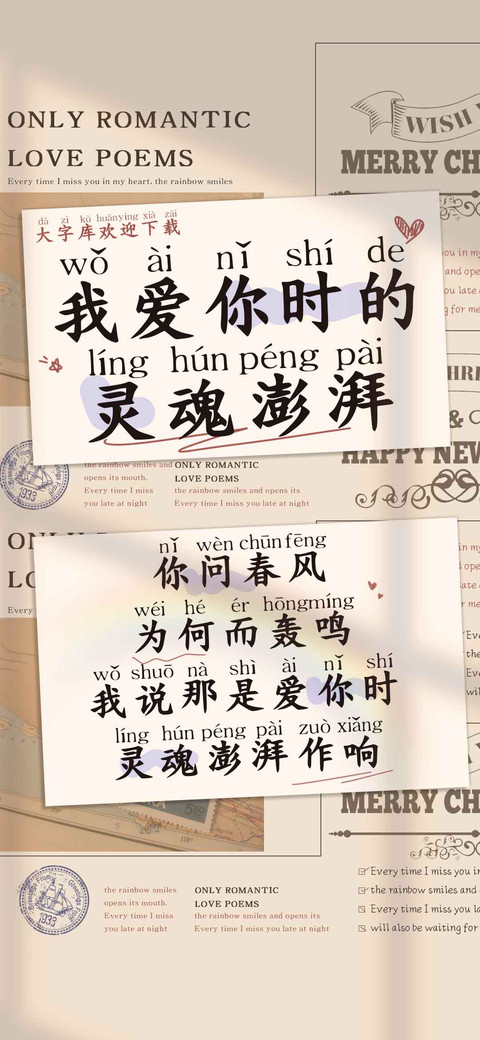 ONLY ROMANTIC
LOVE POEMS
Every time I miss you in my heart, the rainbow smiles
WISH
MERRY CH
dà zì kù huānyíng xià zǎi
大字库欢迎下载
wǒ ài nǐ shí de
我爱你时的
líng hún péng pài
灵魂澎湃
HAPPY NEW
the rainbow smiles and
opens its mouth.
Every time I miss
you late at night
ONLY ROMANTIC
LOVE POEMS
the rainbow smiles and opens its
Every time I miss you late at night
1933
nǐ wèn chūn fēng
你问春风
wéi hé ér hōng míng
为何而轰鸣
wǒ shuō nà shì ài nǐ shí
我说那是爱你时
líng hún péng pài zuò xiǎng
灵魂澎湃作响
MERRY CH
the rainbow smiles
opens its mouth.
Every time I miss
you late at night
ONLY ROMANTIC
LOVE POEMS
the rainbow smiles and opens its
Every time I miss you late at night
1933
Every time I miss you in
the rainbow smiles and
Every time I miss you la
will also be waiting for